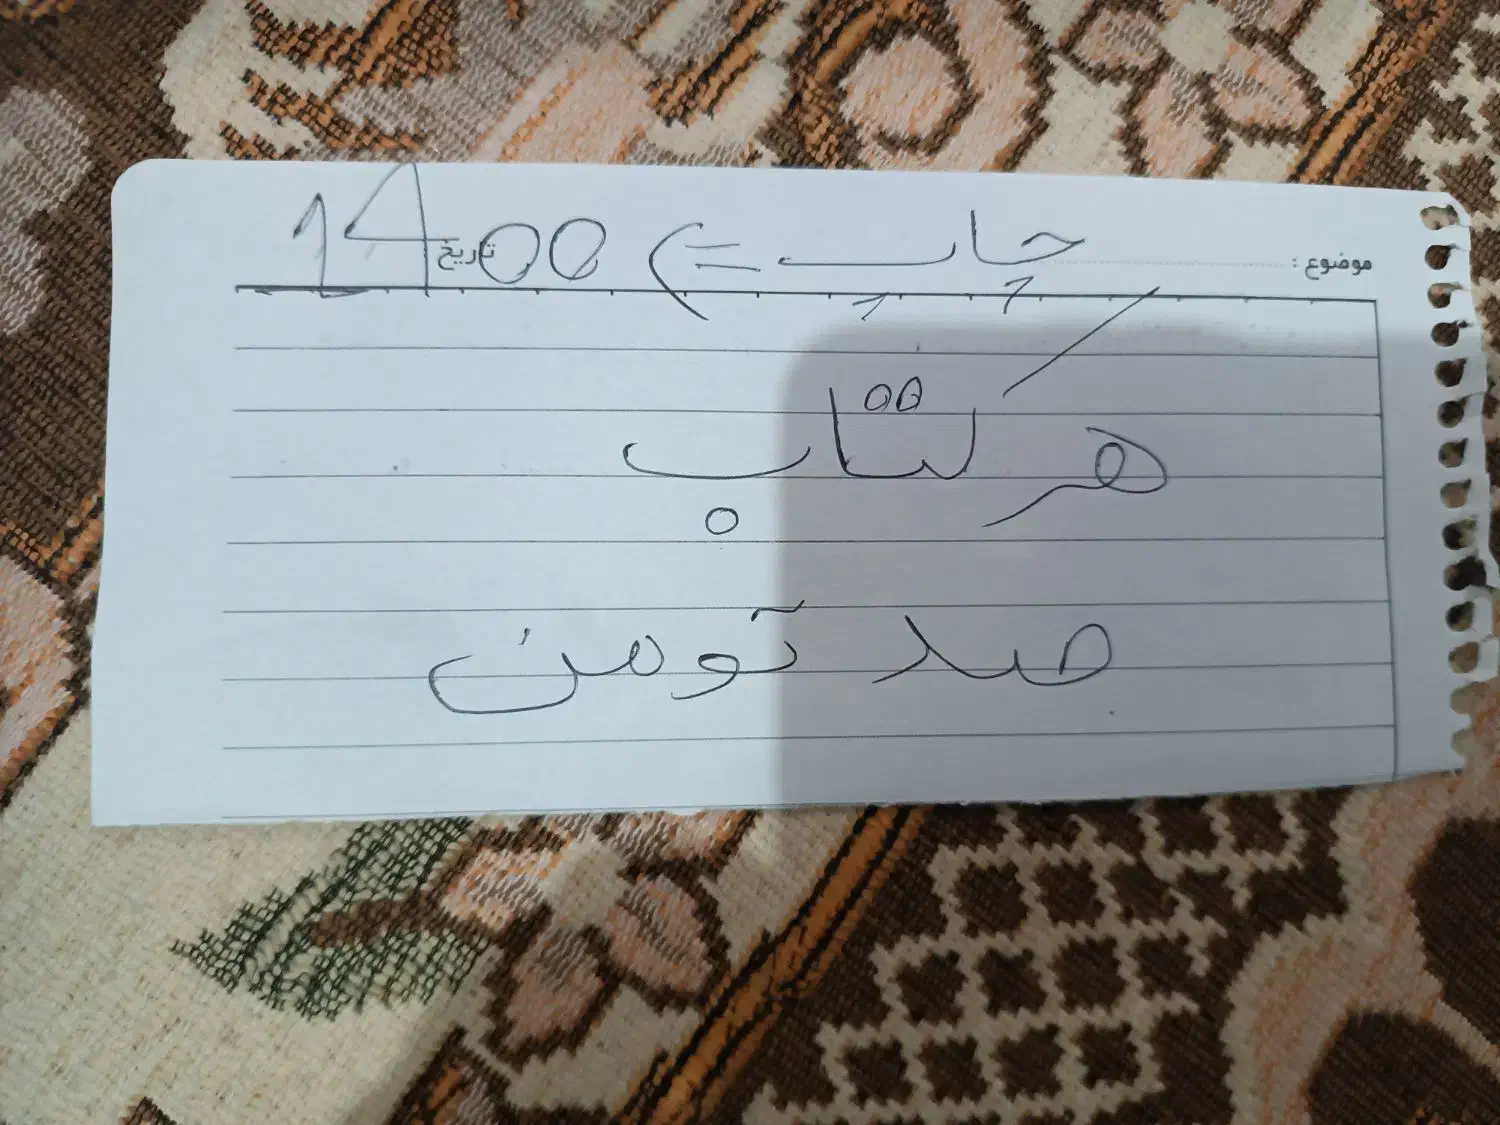 موضوع : چاپ => 1400 تاریخ
هر کتاب
صد تومن